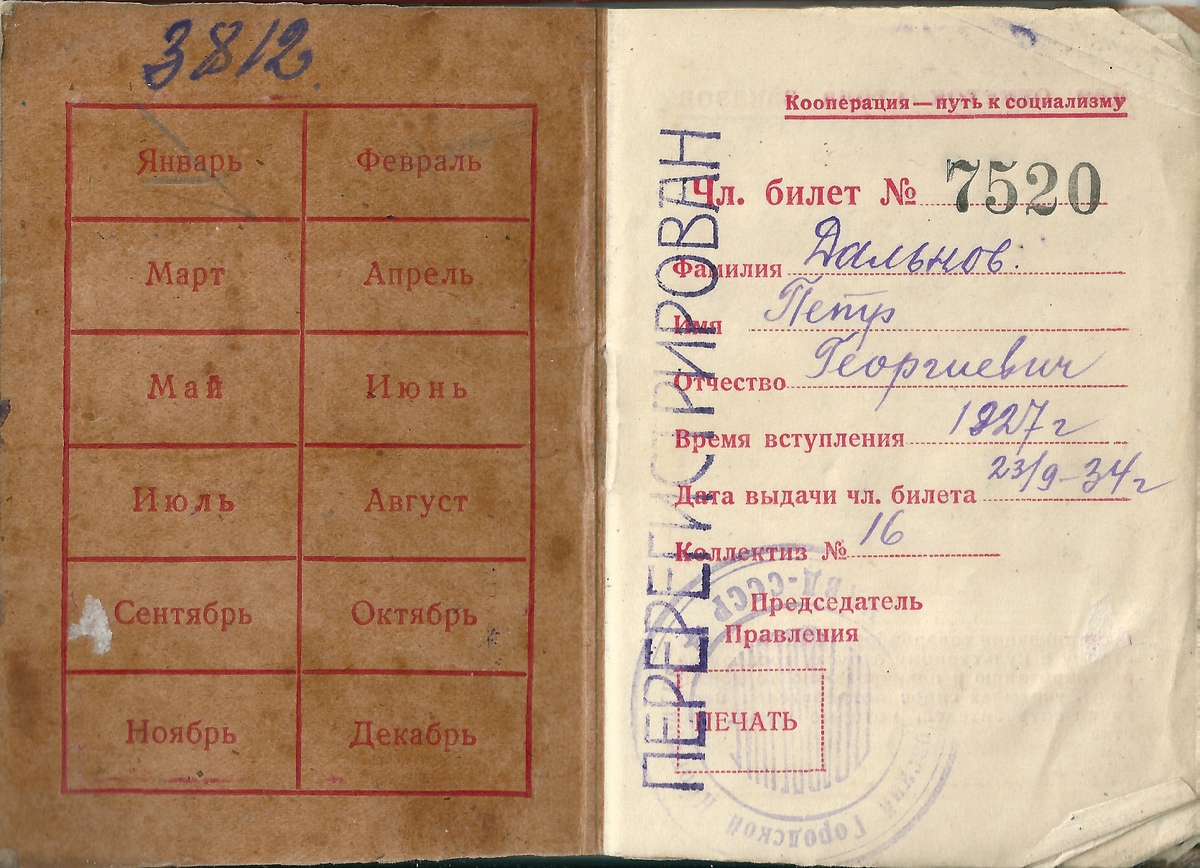 3812
Январь Февраль
Март Апрель
Май Июнь
Июль Август
Сентябрь Октябрь
Ноябрь Декабрь
Кооперация — путь к социализму
Чл. билет № 7520
Фамилия Дальнов.
Имя Петр
Отчество Георгиевич
Время вступления 1927 г
Дата выдачи чл. билета 23/9-34 г
Коллектив № 16
Председатель
Правления
ПЕЧАТЬ
ПЕРЕРЕГИСТРИРОВАН
Городской